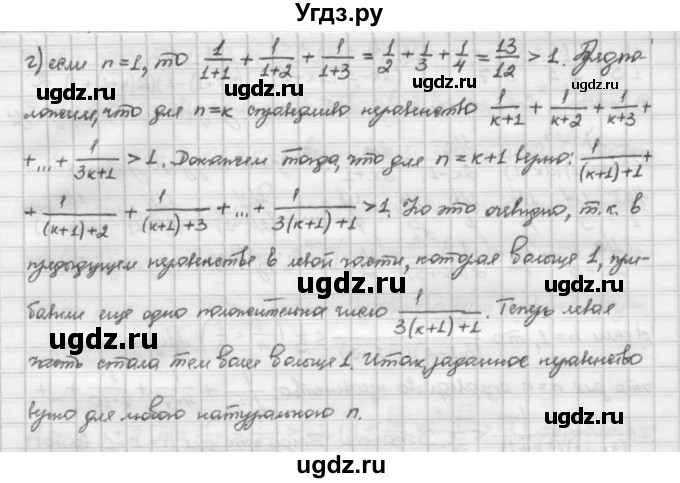 Угдз.ру
г) если n=1, то 1/(1+1) + 1/(1+2) + 1/(1+3) = 1/2 + 1/3 + 1/4 = 13/12 > 1. Предпо-
ugdz.ru ugdz.ru
ложим, что для n=k справедливо неравенство 1/(k+1) + 1/(k+2) + 1/(k+3) +
+ ... + 1/(3k+1) > 1. Докажем тогда, что для n=k+1 верно: 1/((k+1)+1) +
ugdz.ru
+ 1/((k+1)+2) + 1/((k+1)+3) + ... + 1/(3(k+1)+1) > 1. Но это очевидно, т.к. в
ugdz.ru ugdz.ru
предыдущем неравенстве в левой части, которая больше 1, при-
ugdz.ru
бавили еще одно положительное число 1/(3(k+1)+1). Теперь левая
ugdz.ru ugdz.ru
часть стала тем более больше 1. Итак, заданное неравенство
ugdz.ru
верно для любого натурального n.
ugdz.ru ugdz.ru
ugdz.ru